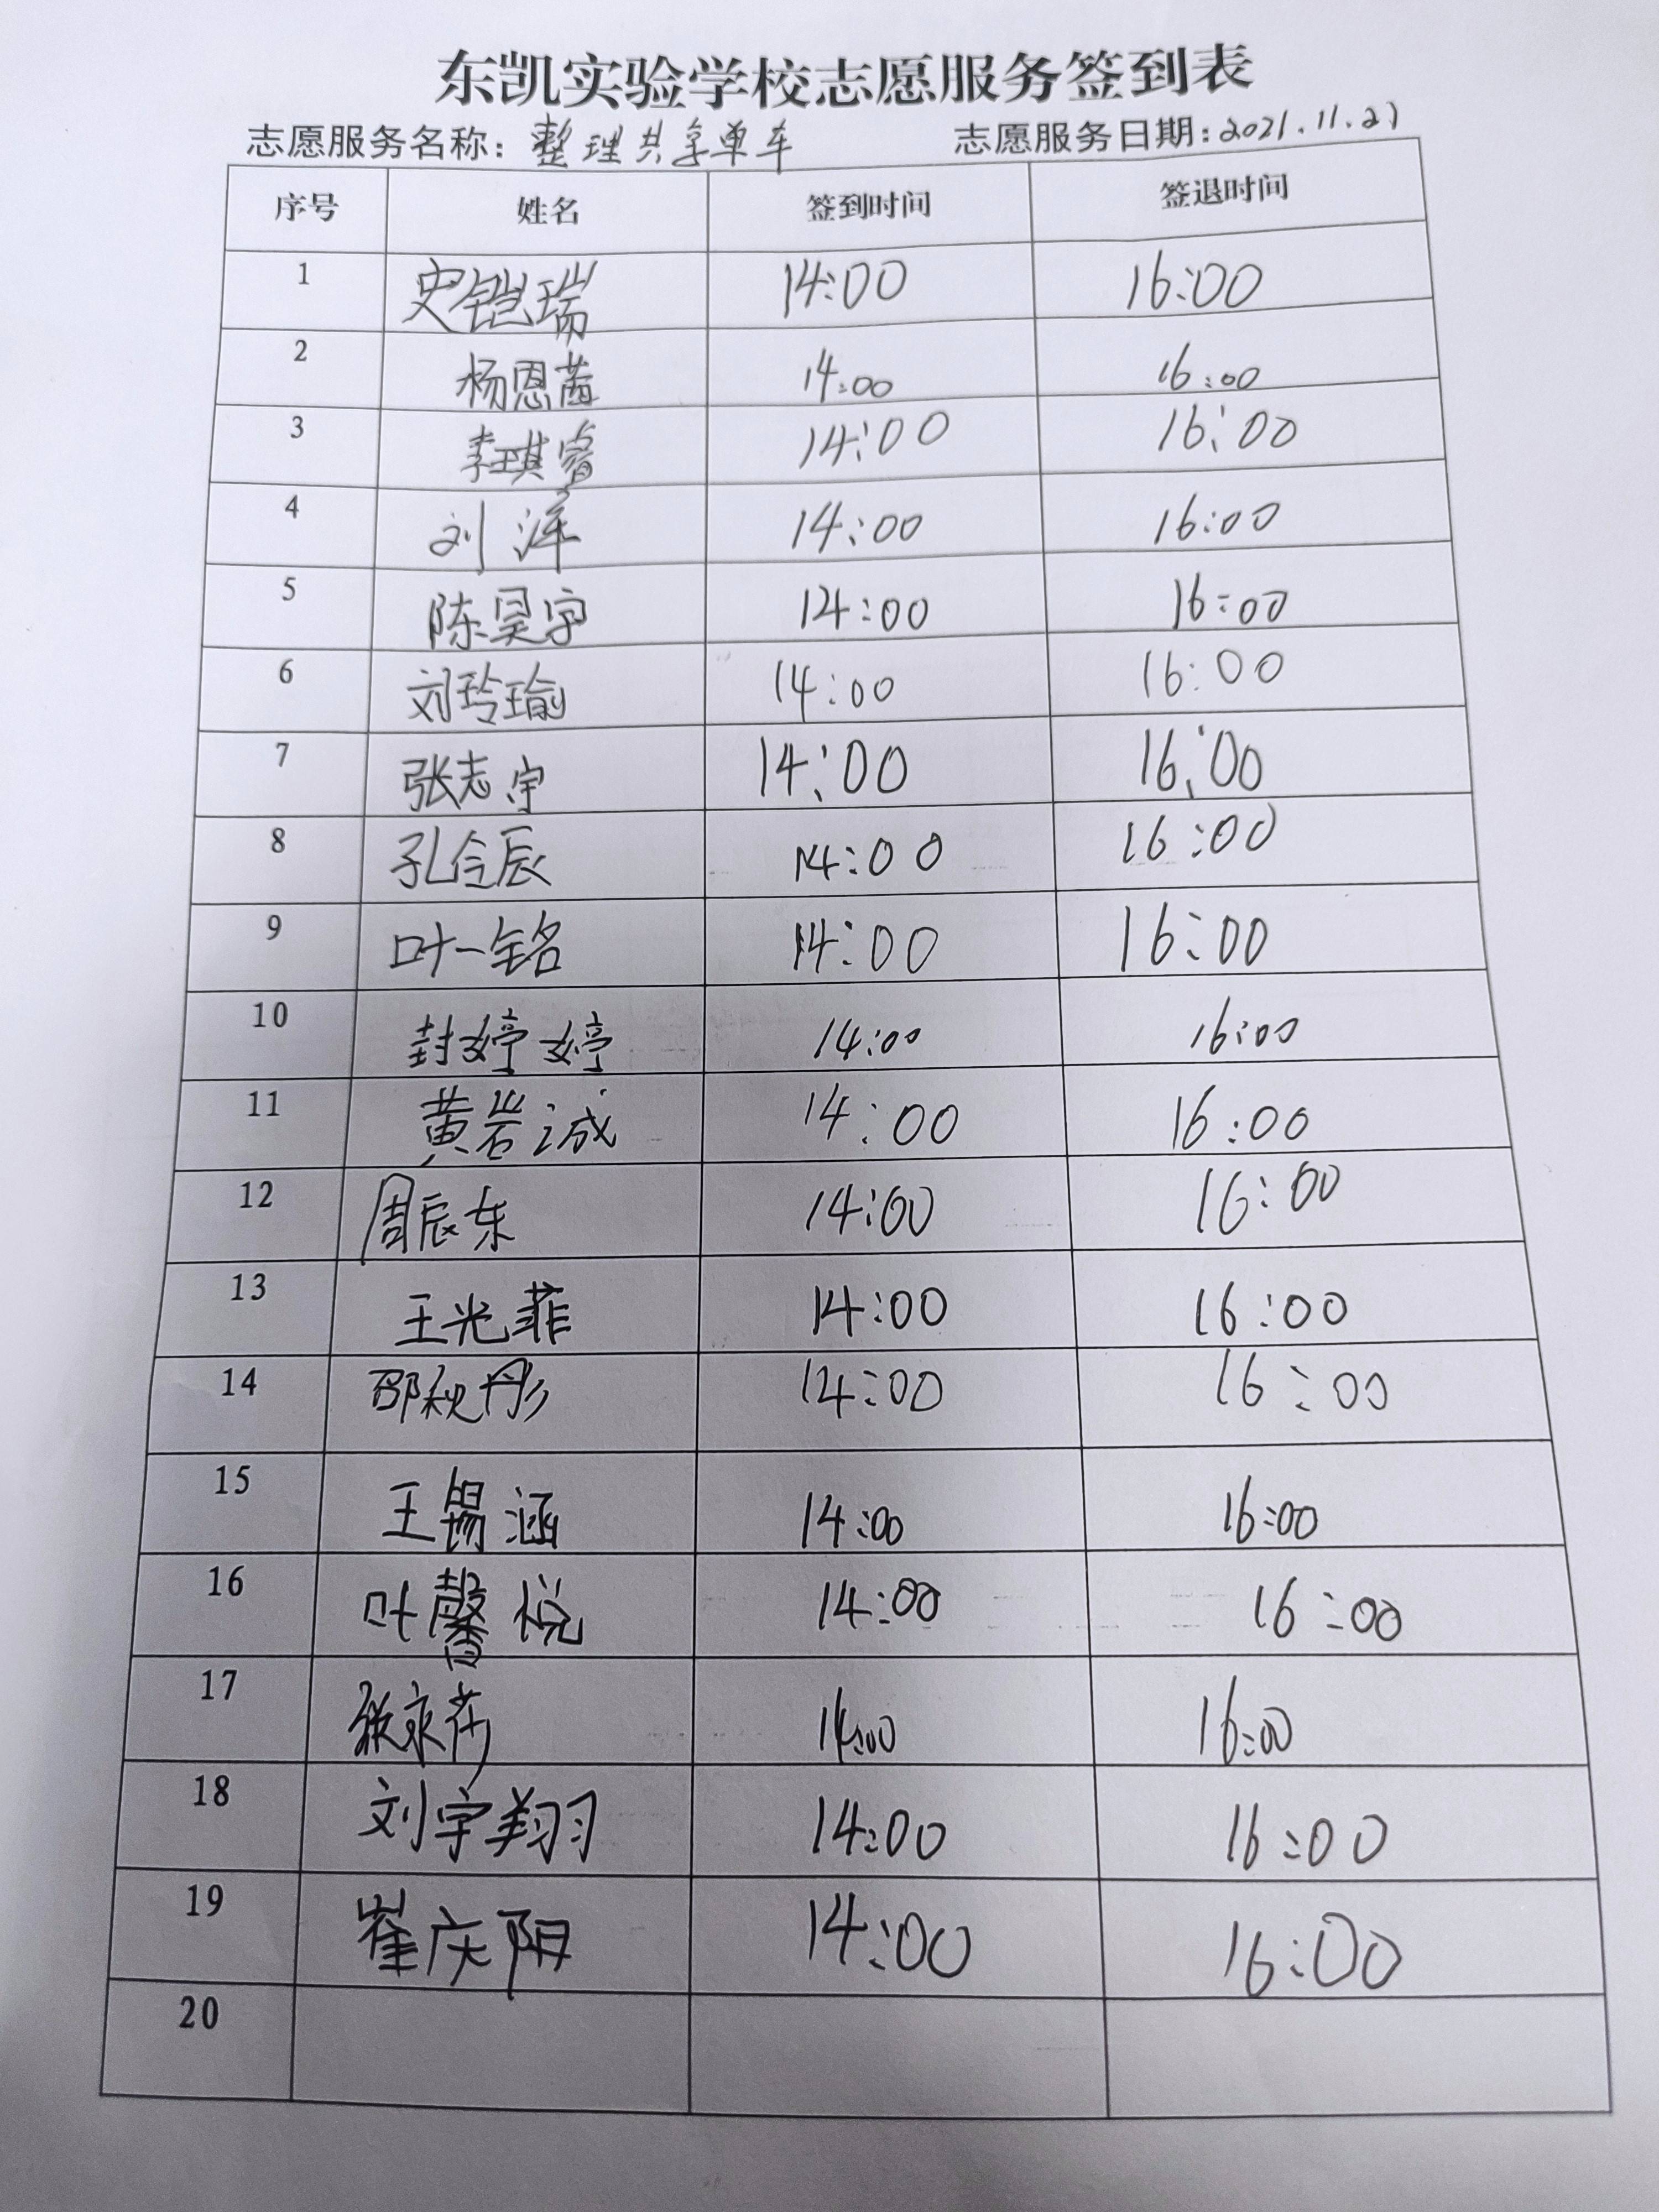 东凯实验学校志愿服务签到表
志愿服务名称：整理共享单车 志愿服务日期：2021.11.27
序号 姓名 签到时间 签退时间
1 史铠瑞 14:00 16:00
2 杨恩茜 14:00 16:00
3 李琪睿 14:00 16:00
4 刘洋 14:00 16:00
5 陈昊宇 14:00 16:00
6 刘玲瑜 14:00 16:00
7 张志宇 14:00 16:00
8 孔令辰 14:00 16:00
9 叶一铭 14:00 16:00
10 封婷婷 14:00 16:00
11 黄岩诚 14:00 16:00
12 周辰东 14:00 16:00
13 王光菲 14:00 16:00
14 邵秋彤 14:00 16:00
15 王锡涵 14:00 16:00
16 叶馨悦 14:00 16:00
17 张永莎 14:00 16:00
18 刘宇翔 14:00 16:00
19 崔庆阴 14:00 16:00
20